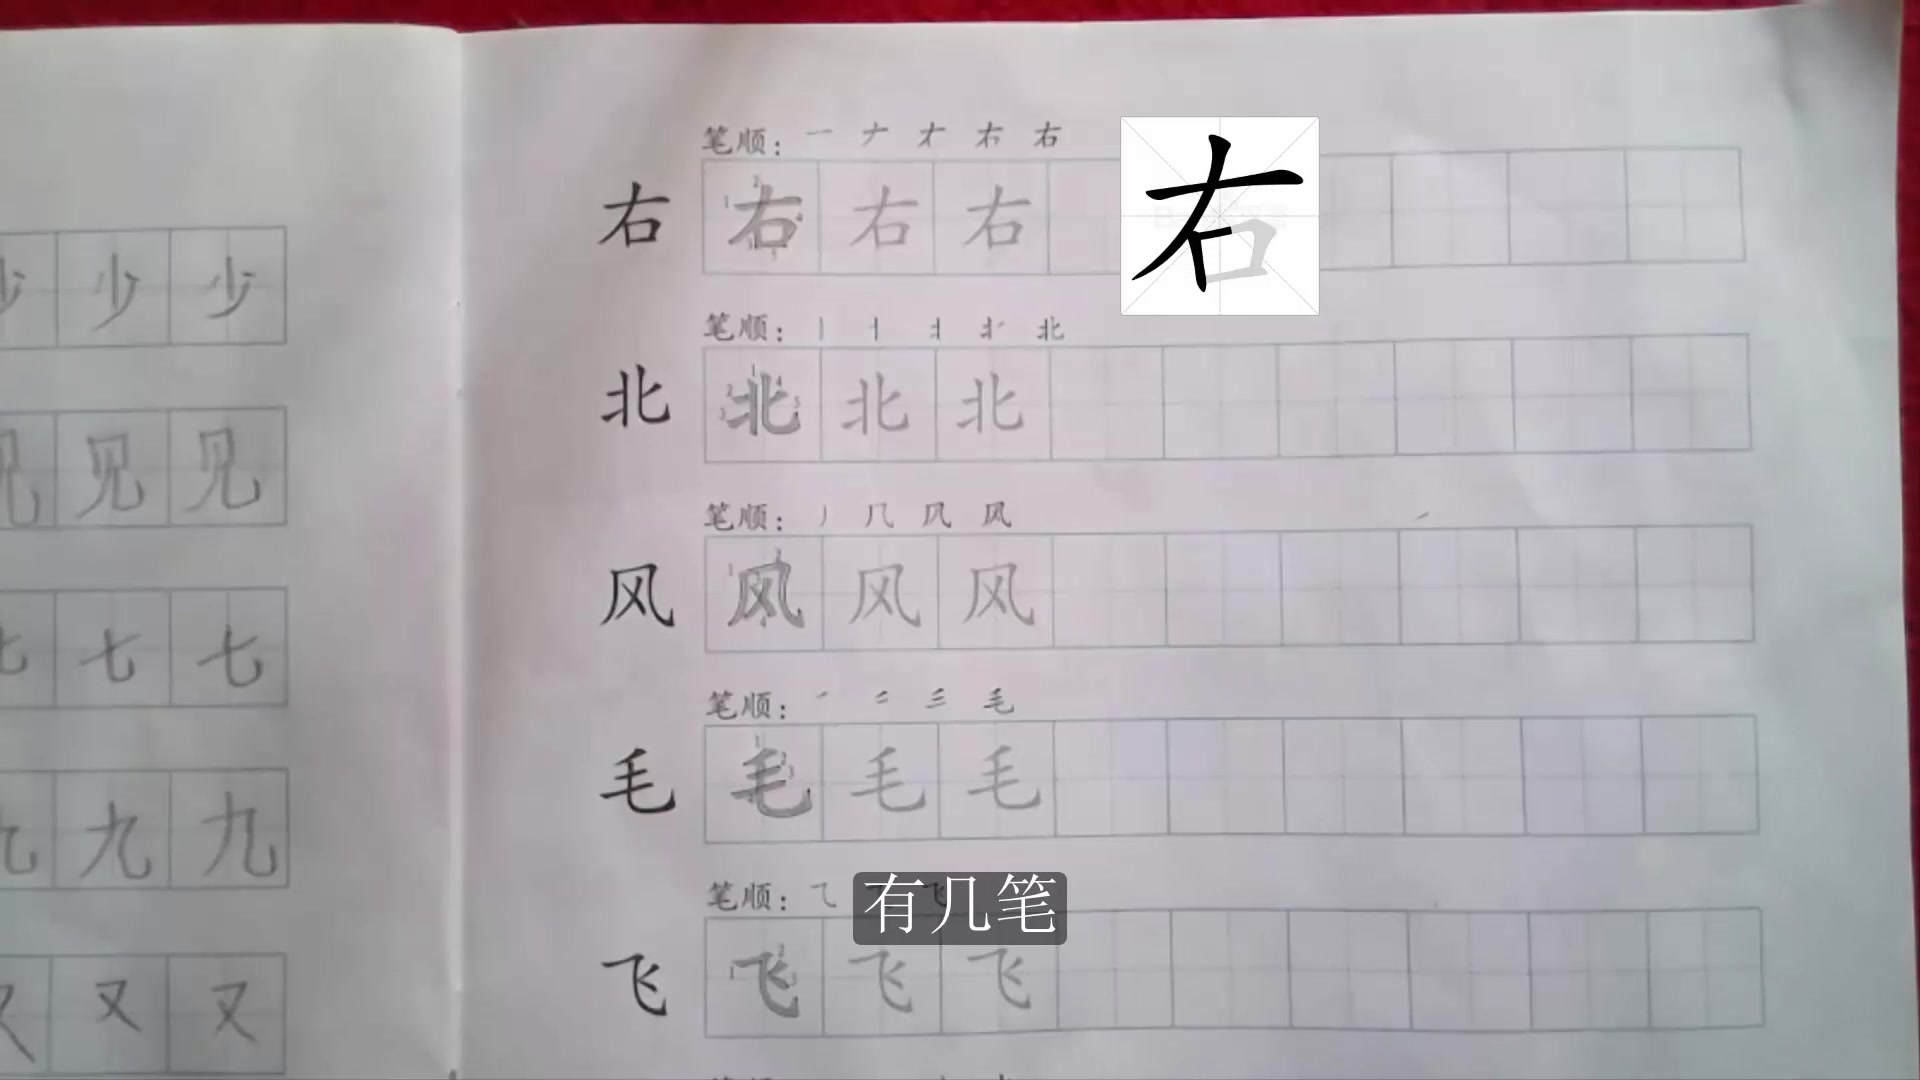 笔顺：一 ナ 才 右 右
右 右 右 右 右
笔顺：丨 北
北 北 北 北
笔顺：丿 几 风 风
风 风 风 风
笔顺： 毛
毛 毛 毛 毛
笔顺：乁 飞
飞 飞 飞 飞
有几笔
少 少 少
见 见 见
七 七 七
九 九 九
又 又 又